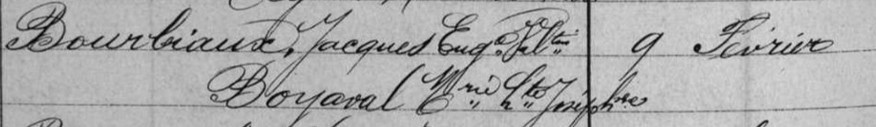 Bourbiaux, Jacques Eug^e 9 Février
Boyaval M^rie H^te Joséph^ne